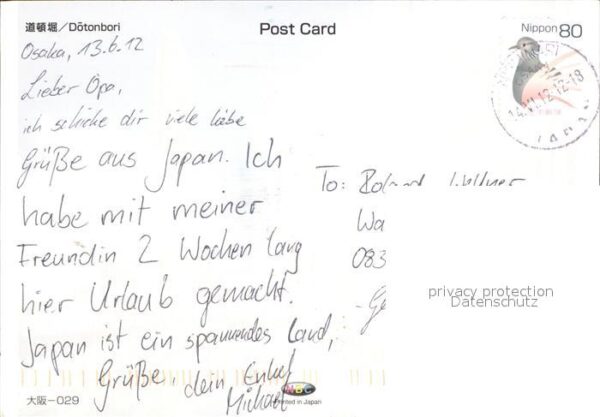 道頓堀／Dōtonbori
Post Card
Nippon 80
Osaka, 13.6.12
14.VI.12.12-18
JAPAN
Lieber Opa,
ich schicke dir viele liebe
Grüße aus Japan. Ich
To: Roland
habe mit meiner
Wa
Freundin 2 Wochen lang
083
hier Urlaub gemacht.
privacy protection
Datenschutz
Ge
Japan ist ein spannendes Land,
Grüße, dein Enkel
Michael
大阪－029
NBC
Printed in Japan